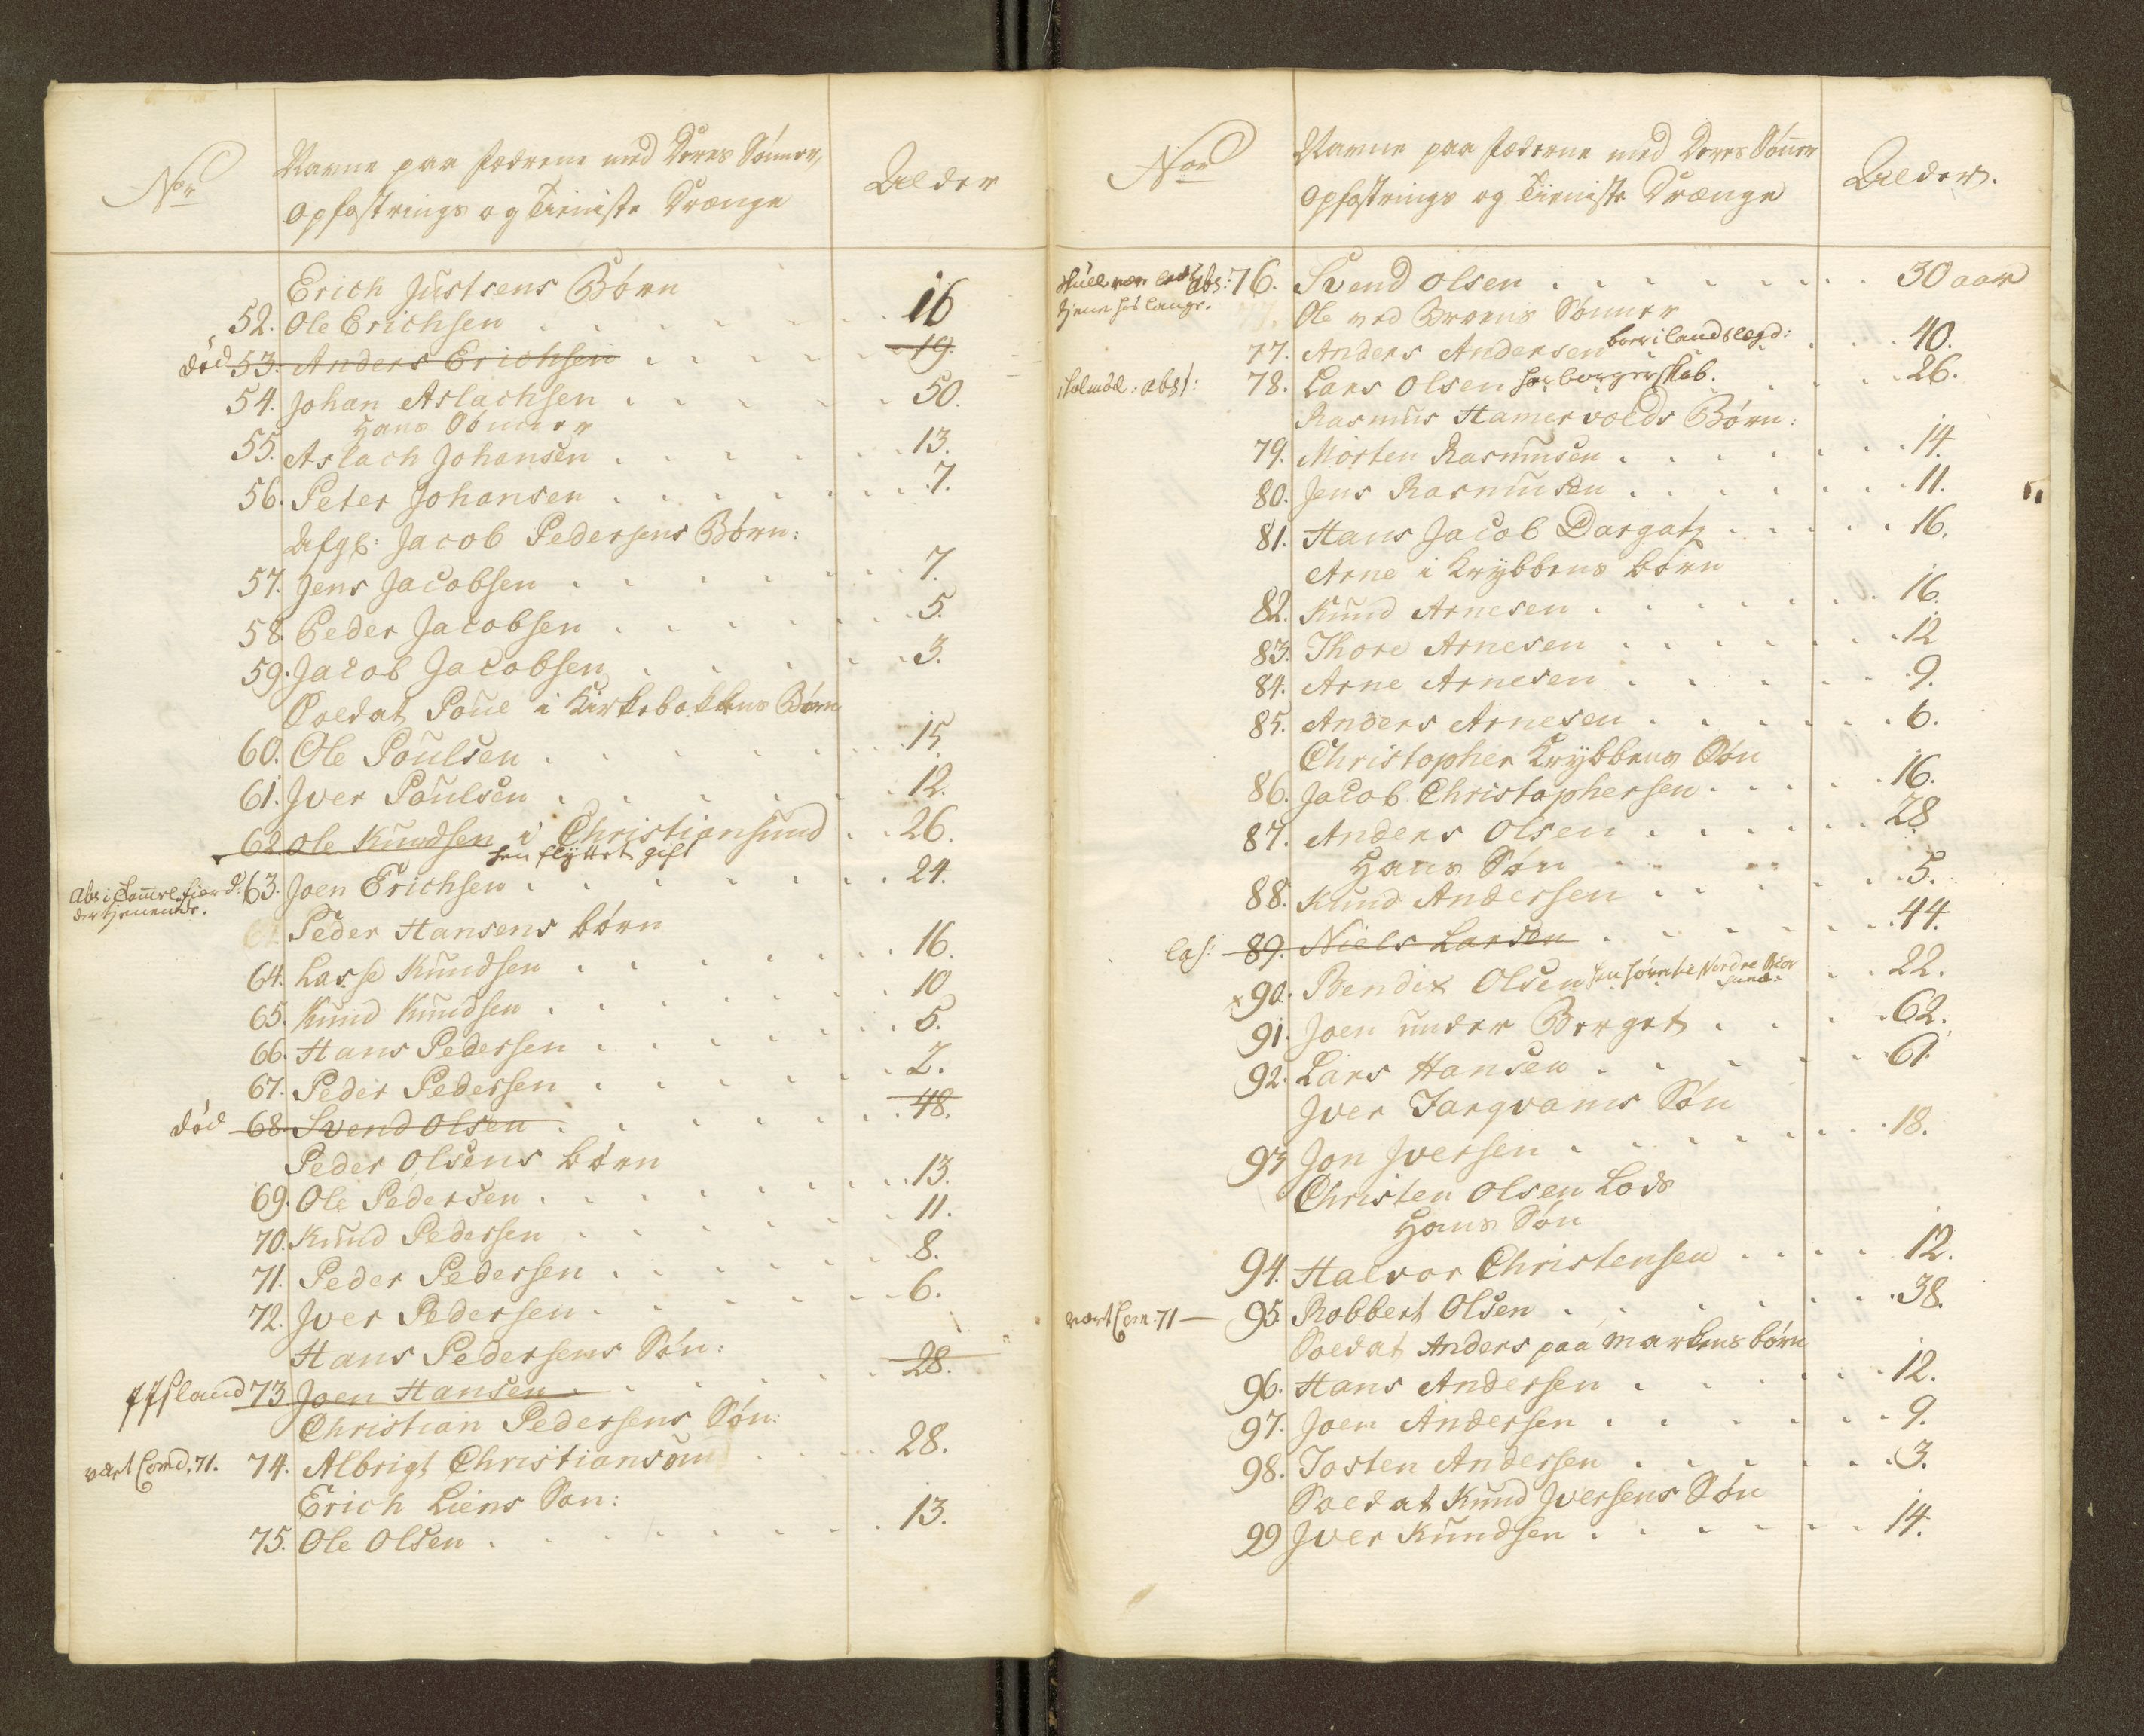 Nor
Navne paa Fædrene med Deres Sönner,
Opfostrings og Tieniste Drænge
Alder
Erich Justsens Börn
52. Ole Erichsen 16
död 53. Anders Erichsen 19.
54. Johan Aslachsen 50.
Hans Sönner
55. Aslach Johansen 13.
56. Peter Johansen 7.
Afg: Jacob Pedersens Börn:
57. Jens Jacobsen 7.
58. Peder Jacobsen 5.
59. Jacob Jacobsen 3.
Soldat Poul i Kirkebakkens Börn
60. Ole Poulsen 15.
61. Jver Poulsen 12.
62 Ole Knudsen i Christiansund 26.
hen flyttet gift
abs: i
63. Joen Erichsen 24.
der tjenende.
Peder Hansens börn
64. Lasse Knudsen 16.
65. Knud Knudsen 10
66. Hans Pedersen 5.
67. Peder Pedersen 2.
död 68. Svend Olsen 48.
Peder Olsens börn
69. Ole Pedersen 13.
70. Knud Pedersen 11.
71. Peder Pedersen 8.
72. Jver Pedersen 6.
Hans Pedersens Sön:
73 Joen Hansen 28.
Christian Pedersens Sön:
vært Comd. 71. 74. Albrigt Christiansønn 28.
Erich Liens Son:
75. Ole Olsen 13.
Nor
Navne paa Fæderne med Deres Sönner
Opfostrings og Tieniste Drænge
Alder.
abs: 76. Svend Olsen 30 aar
tjene hos
Ole ved Broens Sönner
77. Anders Andersen bor i landslægd: 40.
abst: 78. Lars Olsen har borgerskab. 26.
Rasmus Hamervolds Börn:
79. Morten Rasmusen 14.
80. Jens Rasmusen 11.
81. Hans Jacob Dargatz 16.
Arne i Krybbens börn
82. Knud Arnesen 16.
83. Thore Arnesen 12
84. Arne Arnesen 9.
85. Anders Arnesen 6.
Christopher Krybbens Sön
86. Jacob Christophersen 16.
87. Anders Olsen 28
Hans Sön
88. Knud Andersen 5.
cas: 89. Niels Larsen 44.
x 90. Bendix Olsen Nordre 22.
91. Joen under Berget 62.
92. Lars Hansen 61.
Jver Jarqvams Sön
93 Jon Jversen 18.
Christen Olsen Lods
Hans Sön
94. Halvor Christensen 12.
vært Com: 71 — 95. Robbert Olsen 38.
Soldat Anders paa Markens börn
96. Hans Andersen 12.
97. Joen Andersen 9.
98. Tosten Andersen 3.
Soldat Knud Jversens Sön
99 Jver Knudsen 14.